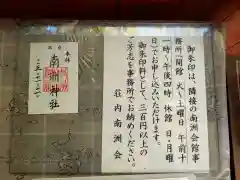 御朱印は、隣接の南洲会館事
務所(開館 火〜土曜日 午前十
一時〜午後四時、休館 日・月曜
日)でお申し込みいただけます。
御朱印料として、三百円以上の
ご芳志を事務所でお納めください。
荘内南洲会
奉拝
南洲神社